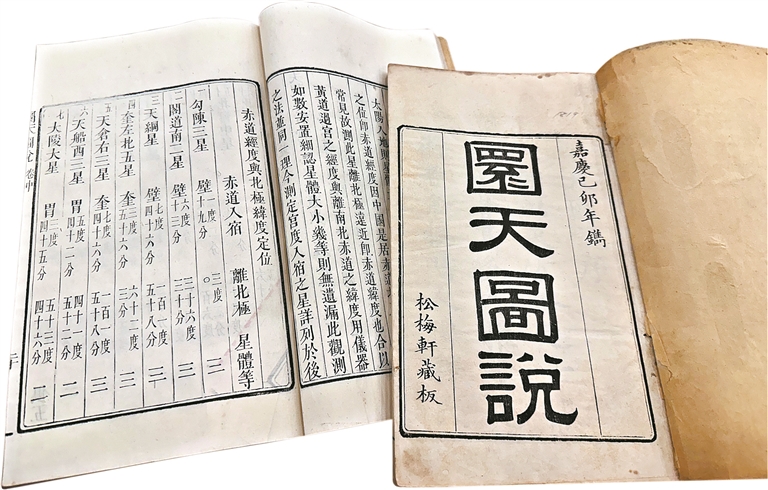 嘉慶己卯年鐫
圜天圖說
松梅軒藏板
1819
太陽入地則
之位即赤道經度因中國是居赤道
常見故測此星離北極遠近即赤道緯度也合以
黃道過宮之經度與離南北赤道之緯度用儀器
如數安置細認星體大小幾等則無遺漏此觀測
之法並同一理今測定宮度入宿之星詳列於後
赤道經度與北極緯度定位
赤道入宿 離北極 星體等
一 勾陳三星 壁 一度十九分 三
二 閣道南二星 壁 六度十三分 三十六分 三
三 天綱星 壁 七度四十六分 一百一度五十八分 三
四 奎左北五星 奎 三度五十六分 六十二度三分 三
五 天倉右三星 奎 七度四十六分 一百一度五十八分 三
六 天船西三星 胃 五度四十二分 四十一度五十一分 二
七 大陵大星 胃 三度四十五分 五十三度四十六分 二
天圖 卷中